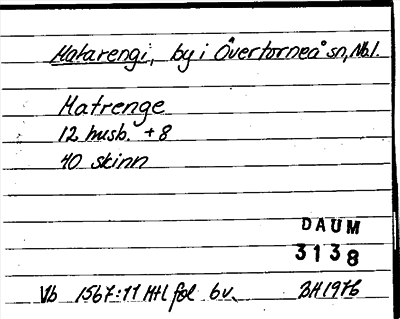 Matarengi, by i Övertorneå sn, Nb l.
Matrenge
12 husb. + 8
40 skinn
DAUM
3138
Vb 1567:11 Htl fol 6 v. BH 1976